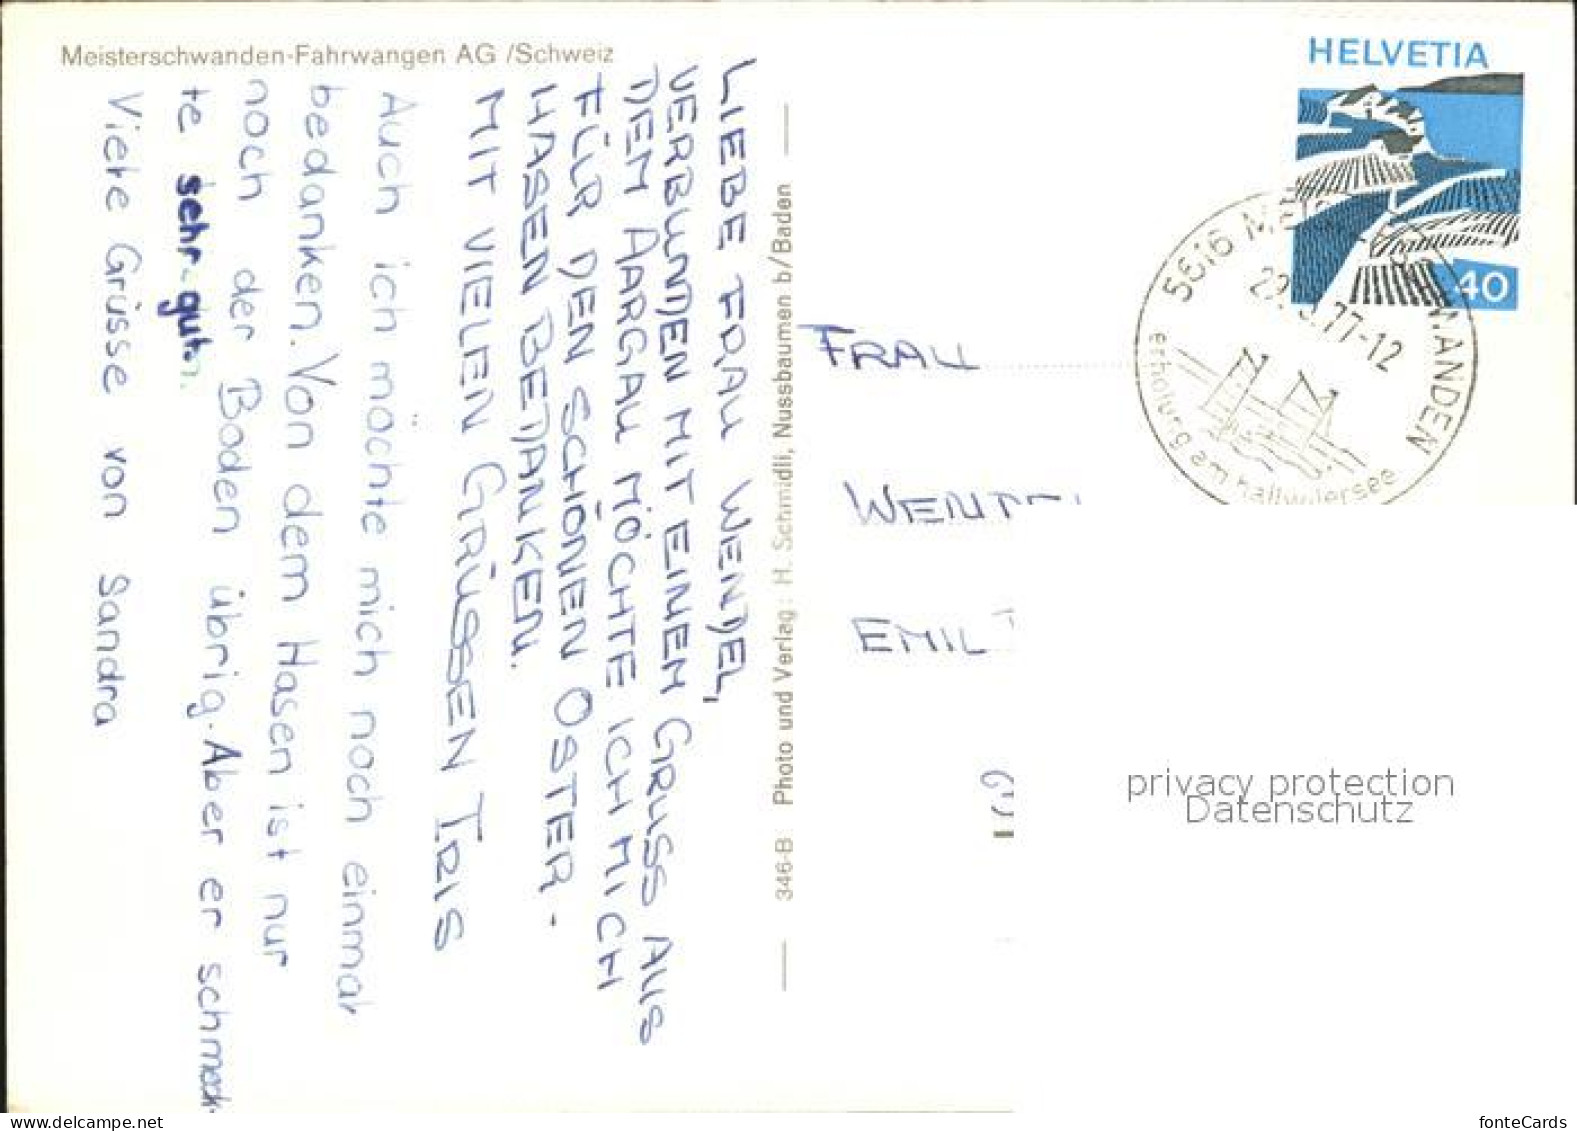 Meisterschwanden-Fahrwangen AG /Schweiz
LIEBE FRAU WENDEL,
VERBUNDEN MIT EINEM GRUSS AUS
DEM AARGAU MÖCHTE ICH MICH
FÜR DEN SCHÖNEN OSTER-
HASEN BEDANKEN.
MIT VIELEN GRÜSSEN IRIS
Auch ich möchte mich noch einmal
bedanken. Von dem Hasen ist nur
noch der Boden übrig. Aber er schmeck-
te sehr gut.
Viele Grüsse von Sandra
346-B Photo und Verlag: H. Schmidli, Nussbaumen b/Baden
HELVETIA
40
5616 MEIS WANDEN
77-12
erholung am hallwilersee
FRAU
EMIL
privacy protection
Datenschutz
fonteCards